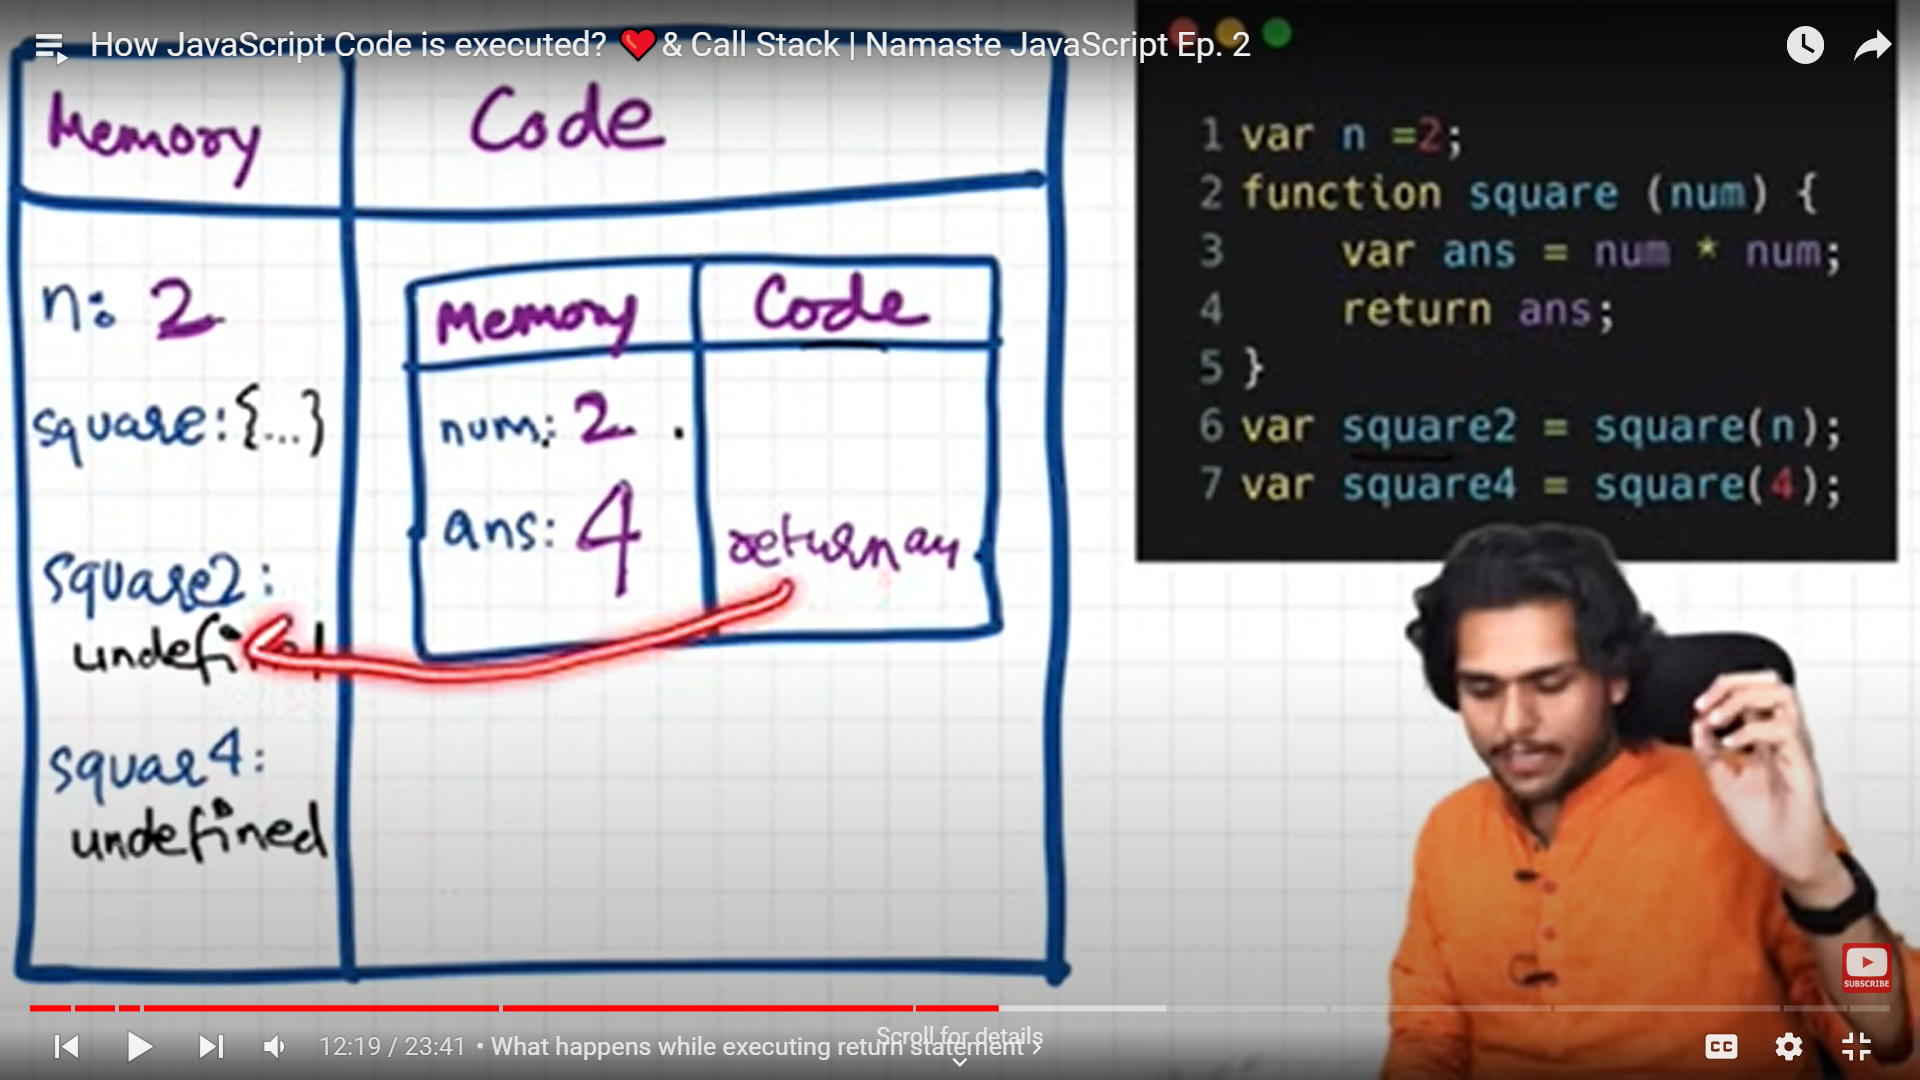 How JavaScript Code is executed? ❤️& Call Stack | Namaste JavaScript Ep. 2
Memory
Code
n: 2
square:{...}
square2:
undefined
squar4:
undefined
Memory
Code
num: 2
ans: 4
return an
1 var n =2;
2 function square (num) {
3     var ans = num * num;
4     return ans;
5 }
6 var square2 = square(n);
7 var square4 = square(4);
SUBSCRIBE
Scroll for details
12:19 / 23:41 • What happens while executing return statement
CC